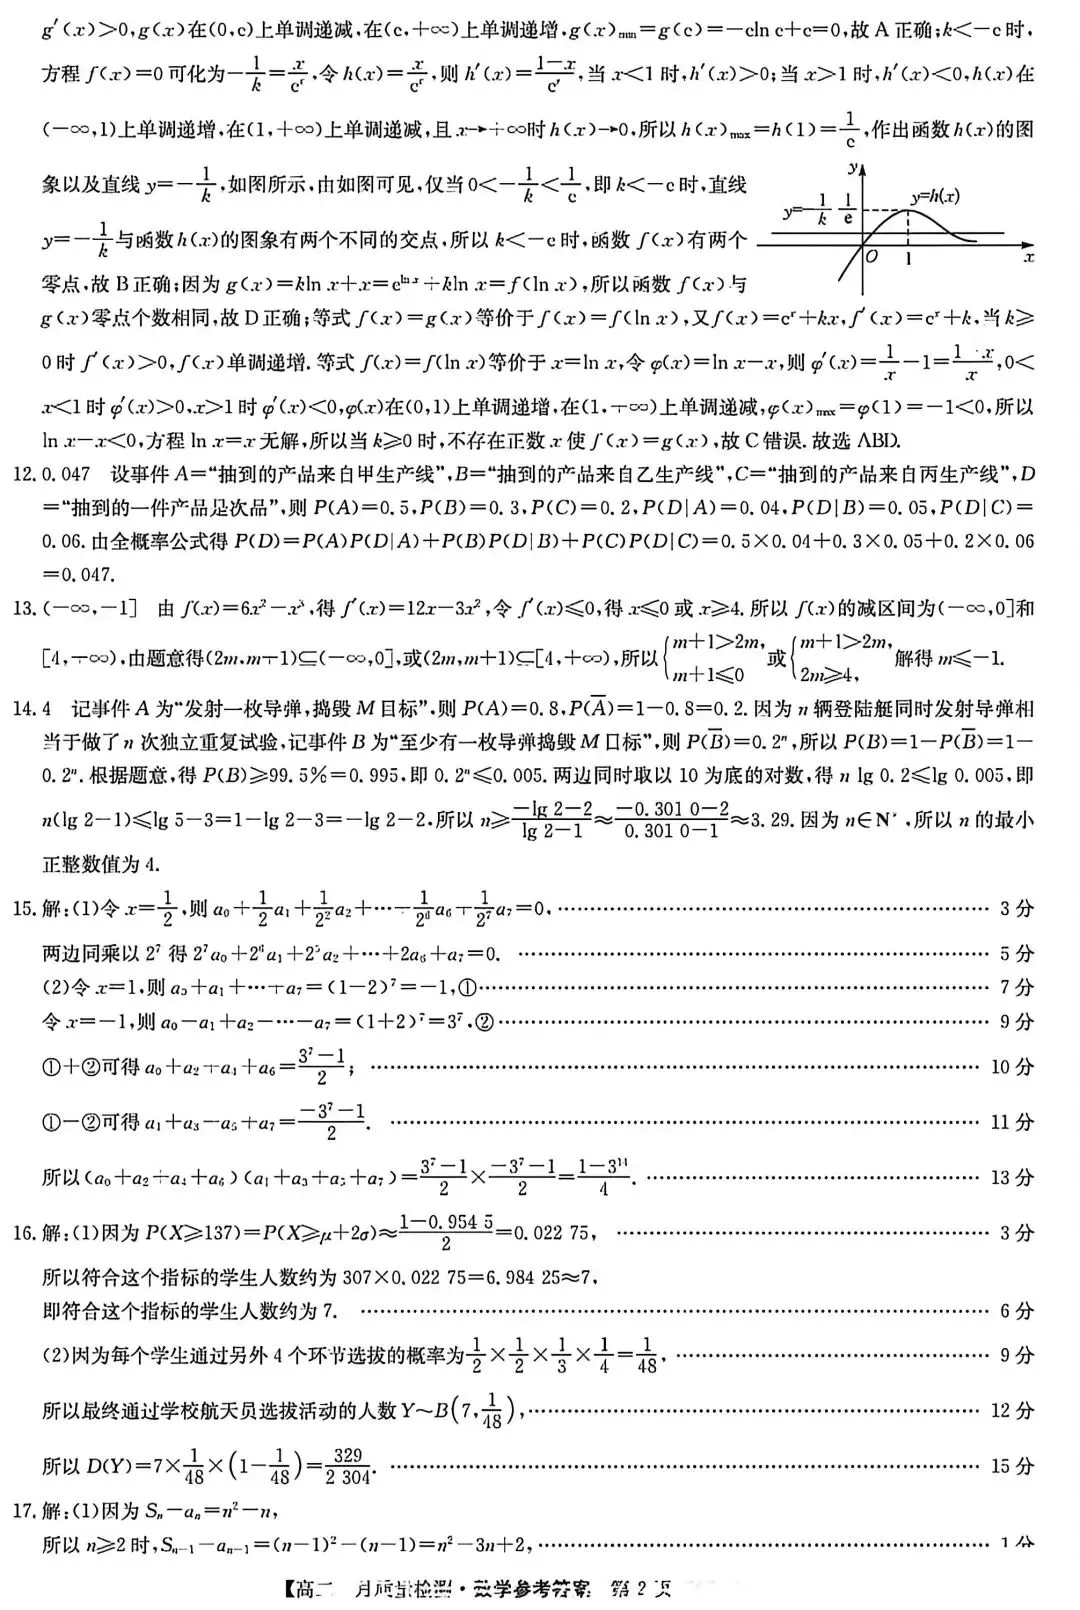 g′(x)>0,g(x)在(0,e)上单调递减,在(e,+∞)上单调递增.g(x)min=g(e)=-eln e+e=0,故 A 正确;k<-e 时,
方程 f(x)=0 可化为-1/k=x/eˣ,令 h(x)=x/eˣ,则 h′(x)=(1-x)/eˣ,当 x<1 时,h′(x)>0;当 x>1 时,h′(x)<0,h(x)在
(-∞,1)上单调递增,在(1,+∞)上单调递减,且 x→+∞时 h(x)→0,所以 h(x)max=h(1)=1/e,作出函数 h(x)的图
象以及直线 y=-1/k,如图所示,由如图可见,仅当 0<-1/k<1/e,即 k<-e 时,直线
y=-1/k与函数 h(x)的图象有两个不同的交点,所以 k<-e 时,函数 f(x)有两个
零点,故 B 正确;因为 g(x)=kln x+x=e^(ln x)+kln x=f(ln x),所以函数 f(x)与
y
y=-1/k 1/e y=h(x)
O 1 x
g(x)零点个数相同,故 D 正确;等式 f(x)=g(x)等价于 f(x)=f(ln x),又 f(x)=eˣ+kx,f′(x)=eˣ+k,当 k≥
0 时 f′(x)>0,f(x)单调递增.等式 f(x)=f(ln x)等价于 x=ln x,令 φ(x)=ln x-x,则 φ′(x)=1/x-1=(1-x)/x,0<
x<1 时 φ′(x)>0,x>1 时 φ′(x)<0,φ(x)在(0,1)上单调递增,在(1,+∞)上单调递减,φ(x)max=φ(1)=-1<0,所以
ln x-x<0,方程 ln x=x 无解,所以当 k≥0 时,不存在正数 x 使 f(x)=g(x),故 C 错误.故选 ABD.
12. 0.047 设事件 A=“抽到的产品来自甲生产线”,B=“抽到的产品来自乙生产线”,C=“抽到的产品来自丙生产线”,D
=“抽到的一件产品是次品”,则 P(A)=0.5,P(B)=0.3,P(C)=0.2,P(D|A)=0.04,P(D|B)=0.05,P(D|C)=
0.06.由全概率公式得 P(D)=P(A)P(D|A)+P(B)P(D|B)+P(C)P(D|C)=0.5×0.04+0.3×0.05+0.2×0.06
=0.047.
13. (-∞,-1] 由 f(x)=6x²-x³,得 f′(x)=12x-3x²,令 f′(x)≤0,得 x≤0 或 x≥4.所以 f(x)的减区间为(-∞,0]和
[4,+∞),由题意得(2m,m+1)⊆(-∞,0],或(2m,m+1)⊆[4,+∞),所以{m+1>2m, m+1≤0 或{m+1>2m, 2m≥4, 解得 m≤-1.
14. 4 记事件 A 为“发射一枚导弹,捣毁 M 目标”,则 P(A)=0.8,P(A̅)=1-0.8=0.2.因为 n 辆登陆艇同时发射导弹相
当于做了 n 次独立重复试验,记事件 B 为“至少有一枚导弹捣毁 M 目标”,则 P(B̅)=0.2ⁿ,所以 P(B)=1-P(B̅)=1-
0.2ⁿ.根据题意,得 P(B)≥99.5%=0.995,即 0.2ⁿ≤0.005.两边同时取以 10 为底的对数,得 n lg 0.2≤lg 0.005,即
n(lg 2-1)≤lg 5-3=1-lg 2-3=-lg 2-2,所以 n≥(-lg 2-2)/(lg 2-1)≈(-0.301 0-2)/(0.301 0-1)≈3.29.因为 n∈N*,所以 n 的最小
正整数值为 4.
15. 解:(1)令 x=1/2,则 a₀+1/2a₁+1/2²a₂+…+1/2⁶a₆+1/2⁷a₇=0, …… 3 分
两边同乘以 2⁷ 得 2⁷a₀+2⁶a₁+2⁵a₂+…+2a₆+a₇=0. …… 5 分
(2)令 x=1,则 a₀+a₁+…+a₇=(1-2)⁷=-1,① …… 7 分
令 x=-1,则 a₀-a₁+a₂-…-a₇=(1+2)⁷=3⁷,② …… 9 分
①+②可得 a₀+a₂+a₄+a₆=(3⁷-1)/2; …… 10 分
①-②可得 a₁+a₃+a₅+a₇=(-3⁷-1)/2. …… 11 分
所以(a₀+a₂+a₄+a₆)(a₁+a₃+a₅+a₇)=(3⁷-1)/2×(-3⁷-1)/2=(1-3¹⁴)/4. …… 13 分
16. 解:(1)因为 P(X≥137)=P(X≥μ+2σ)≈(1-0.954 5)/2=0.022 75, …… 3 分
所以符合这个指标的学生人数约为 307×0.022 75=6.984 25≈7,
即符合这个指标的学生人数约为 7. …… 6 分
(2)因为每个学生通过另外 4 个环节选拔的概率为1/2×1/2×1/3×1/4=1/48, …… 9 分
所以最终通过学校航天员选拔活动的人数 Y~B(7,1/48), …… 12 分
所以 D(Y)=7×1/48×(1-1/48)=329/2 304. …… 15 分
17. 解:(1)因为 Sₙ-aₙ=n²-n,
所以 n≥2 时,Sₙ₋₁-aₙ₋₁=(n-1)²-(n-1)=n²-3n+2, …… 1 分
【高二 月质量检测·数学参考答案 第 2 页